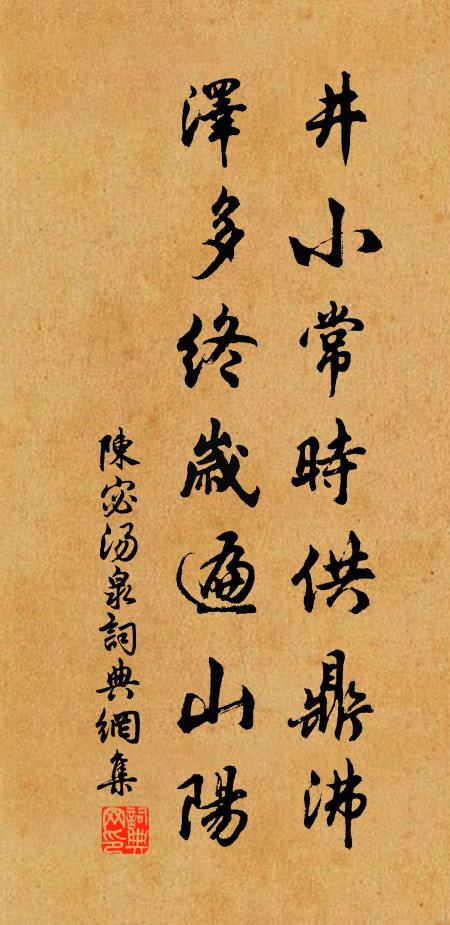 井小常時供鼎沸
澤多終歲遍山陽
陳宓湯泉詞典網集
詞典网印